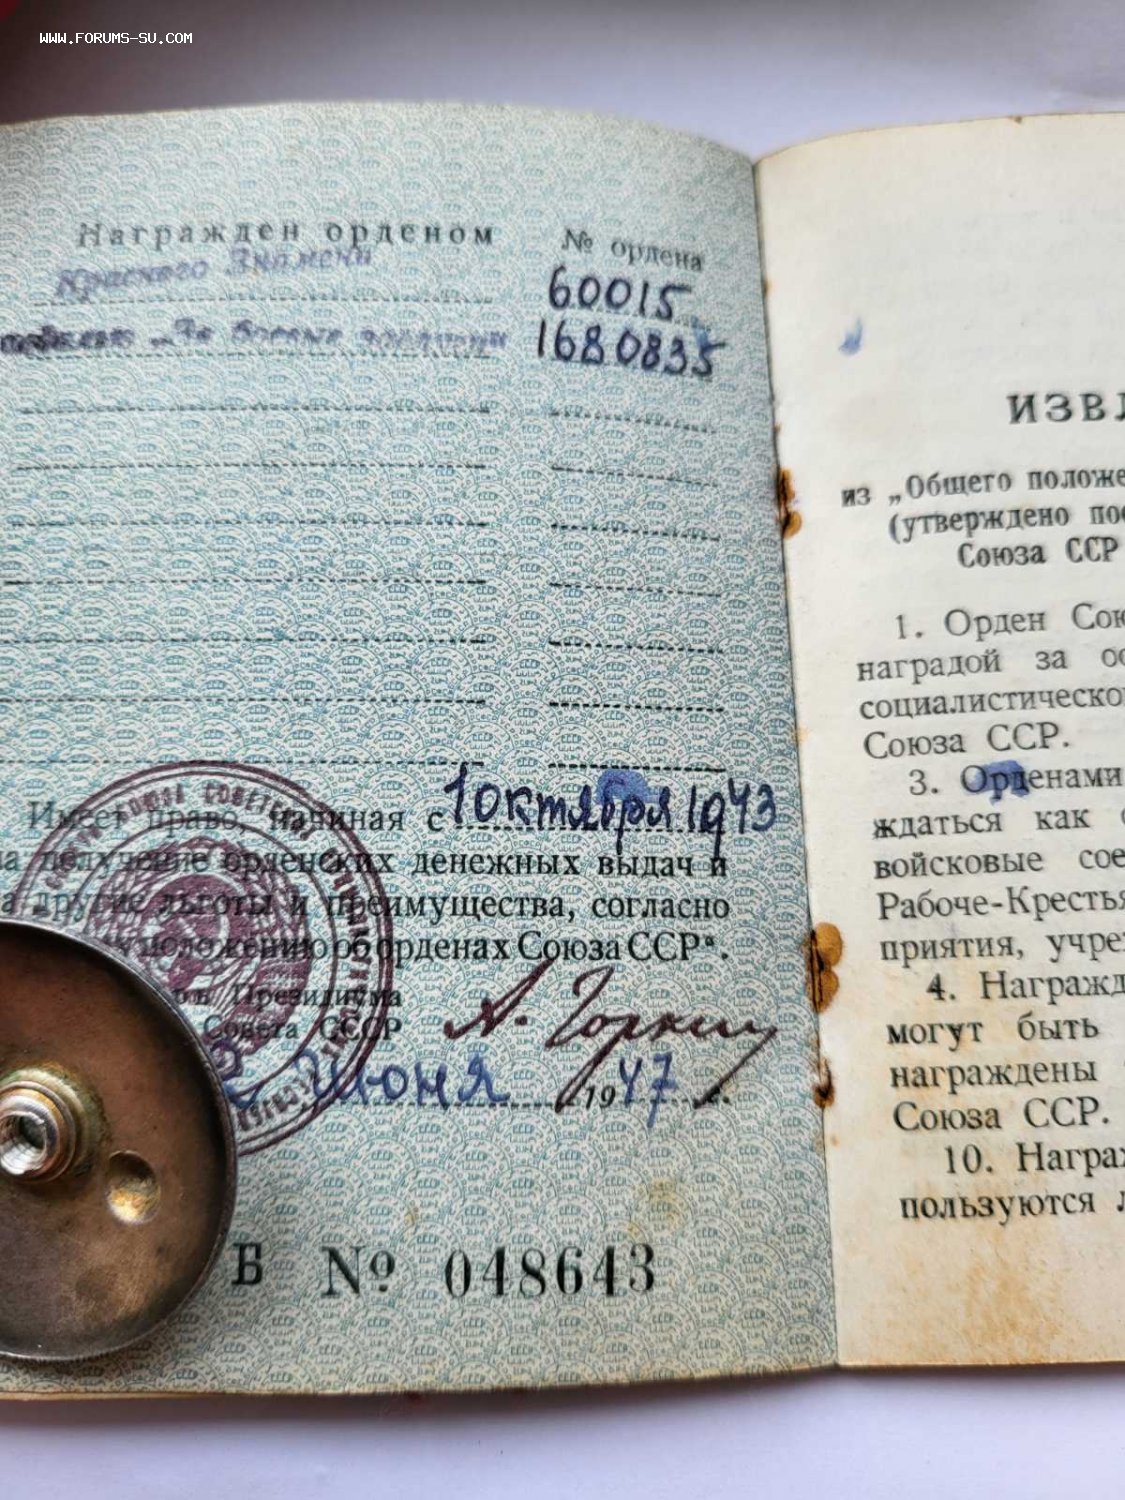 WWW.FORUMS-SU.COM
Награжден орденом № ордена
Красного Знамени 60015
медалью „За боевые заслуги 1680835
Имеет право, начиная с 1 октября 1943
на получение орденских денежных выдач и
на другие льготы и преимущества, согласно
положению об орденах Союза ССР".
Президиума
Совета СССР А. Горкин
Июня 1947 г.
Б № 048643
ИЗВЛ
из „Общего положе
(утверждено пос
Союза ССР
1. Орден Сою
наградой за ос
социалистическо
Союза ССР.
3. Орденами
ждаться как
войсковые сое
Рабоче-Крестья
приятия, учре
4. Награжд
могут быть
награждены
Союза ССР.
10. Награ
пользуются